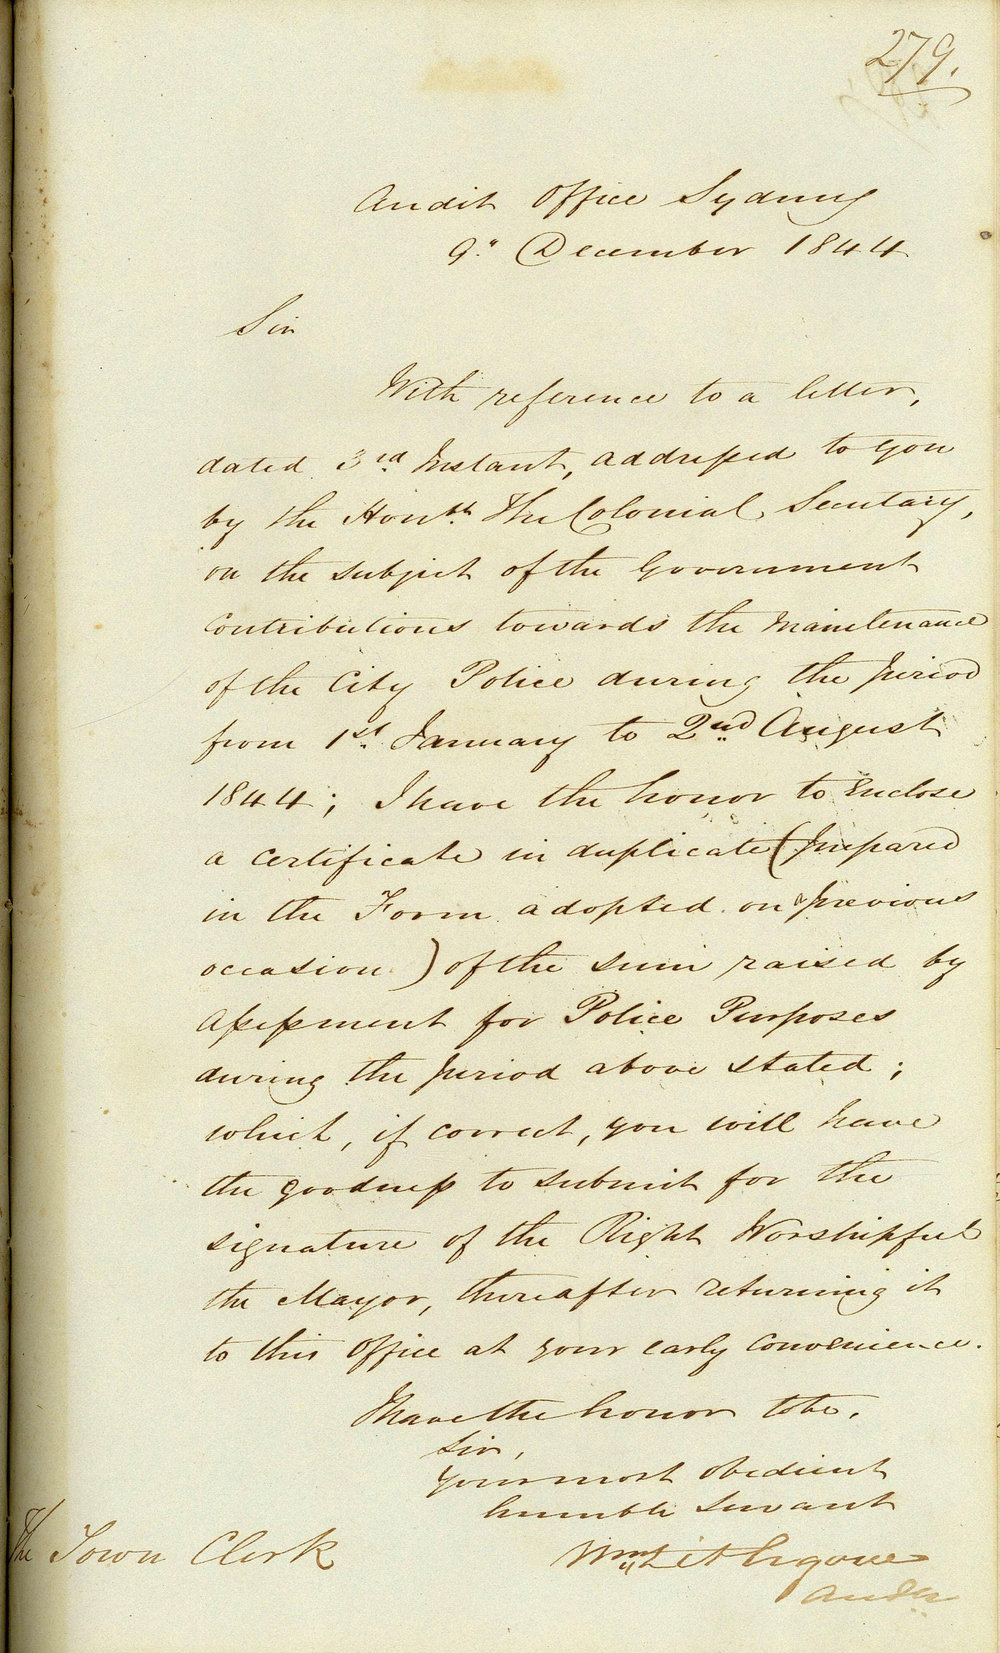 279.
Audit Office Sydney
9th December 1844
Sir
With reference to a letter,
dated 3rd Instant, addressed to you
by the Honble. The Colonial Secretary,
on the subject of the Government
contributions towards the Maintenance
of the City Police during the period
from 1st January to 2nd August
1844; I have the honor to enclose
a certificate in duplicate (prepared
in the Form adopted on a previous
occasion) of the sum raised by
Assessment for Police Purposes
during the period above stated;
which, if correct, you will have
the goodness to submit for the
signature of the Right Worshipful
the Mayor, thereafter returning it
to this Office at your early convenience.
I have the honor to be,
Sir,
Your most obedient
humble servant
Wm Lithgow
The Town Clerk